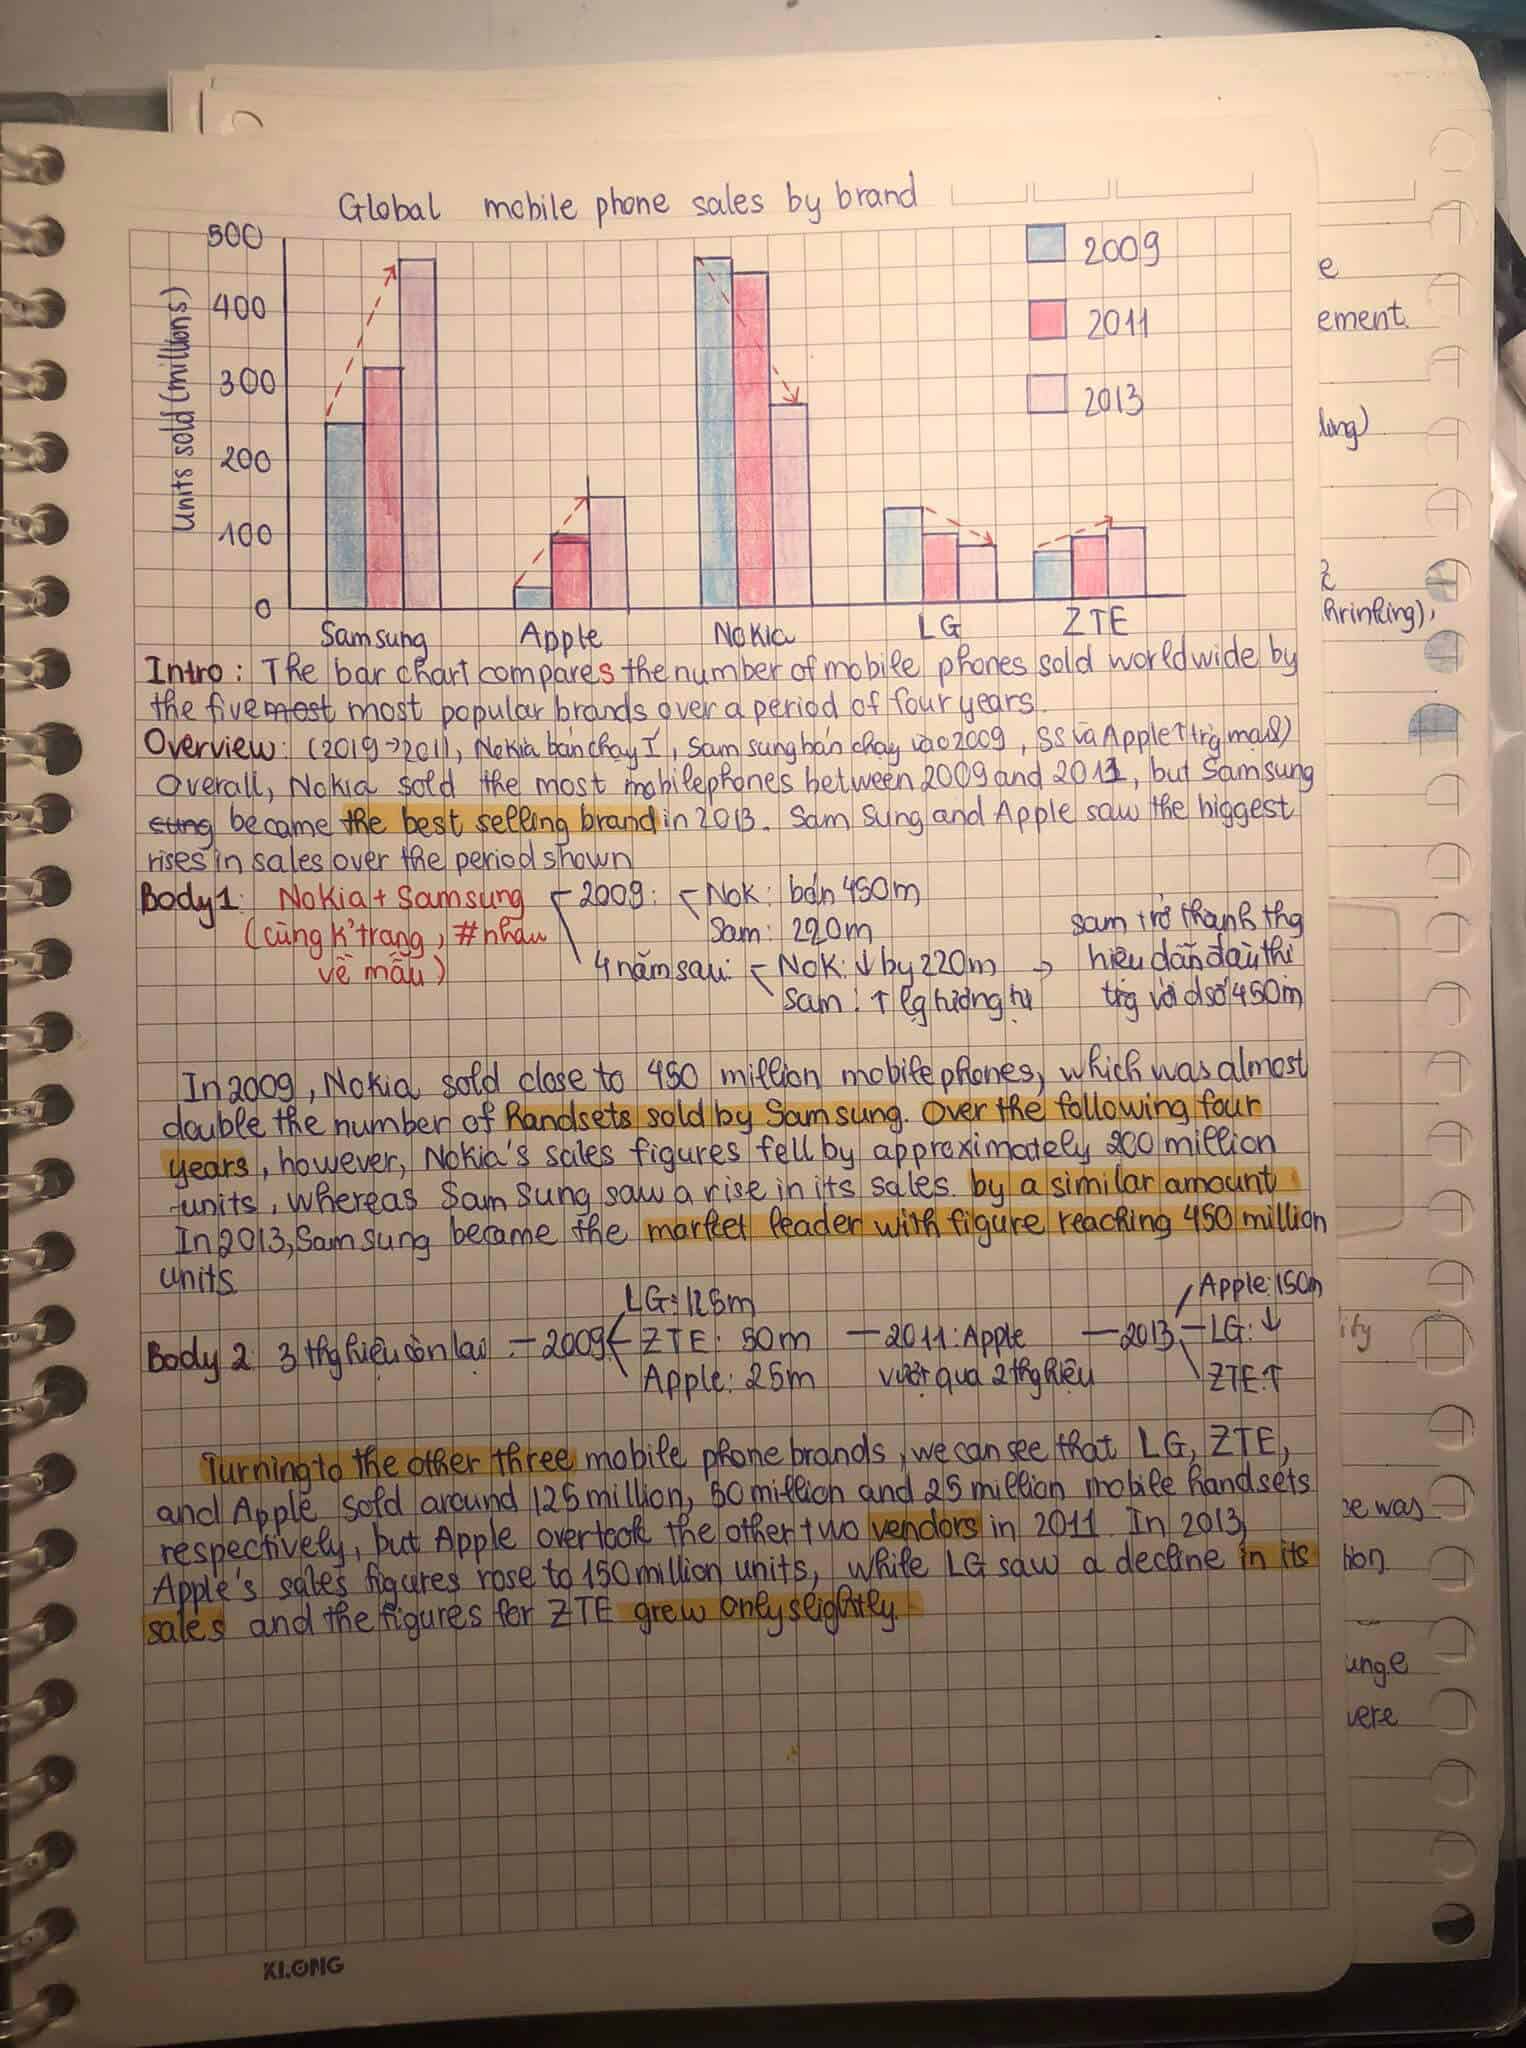 Global mobile phone sales by brand
500
400
300
200
100
0
Units sold (millions)
2009
2011
2013
Samsung Apple Nokia LG ZTE
Intro: The bar chart compares the number of mobile phones sold worldwide by
the five most most popular brands over a period of four years.
Overview: (2019→2011, Nokia bán chạy I, Samsung bán chạy vào 2009, SS và Apple ↑ trg mạnh)
Overall, Nokia sold the most mobilephones between 2009 and 2011, but Samsung
sung became the best selling brand in 2013. Sam Sung and Apple saw the biggest
rises in sales over the period shown
Body 1: Nokia + Samsung
(cùng k' trạng, # nhau
về mẫu)
2009: Nok: bán 450m
Sam: 220m
4 năm sau: Nok: ↓ by 220m →
Sam: ↑ lg tương tự
sam trở thành thg
hiệu dẫn đầu thị
trg với dsố 450m
In 2009, Nokia sold close to 450 million mobile phones, which was almost
double the number of handsets sold by Samsung. Over the following four
years, however, Nokia's sales figures fell by approximately 200 million
units, whereas Sam Sung saw a rise in its sales by a similar amount
In 2013, Samsung became the market leader with figure reaching 450 million
units
Body 2: 3 thg hiệu còn lại – 2009
LG: 125m
ZTE: 50m
Apple: 25m
– 2011: Apple
vượt qua 2 thg hiệu
– 2013
Apple: 150m
– LG: ↓
ZTE ↑
Turning to the other three mobile phone brands, we can see that LG, ZTE,
and Apple sold around 125 million, 50 million and 25 million mobile handsets
respectively, but Apple overtook the other two vendors in 2011. In 2013,
Apple's sales figures rose to 150 million units, while LG saw a decline in its
sales and the figures for ZTE grew only slightly.
KLONG
e
ement.
hrinking),
ify
e was
tion
unge
vere